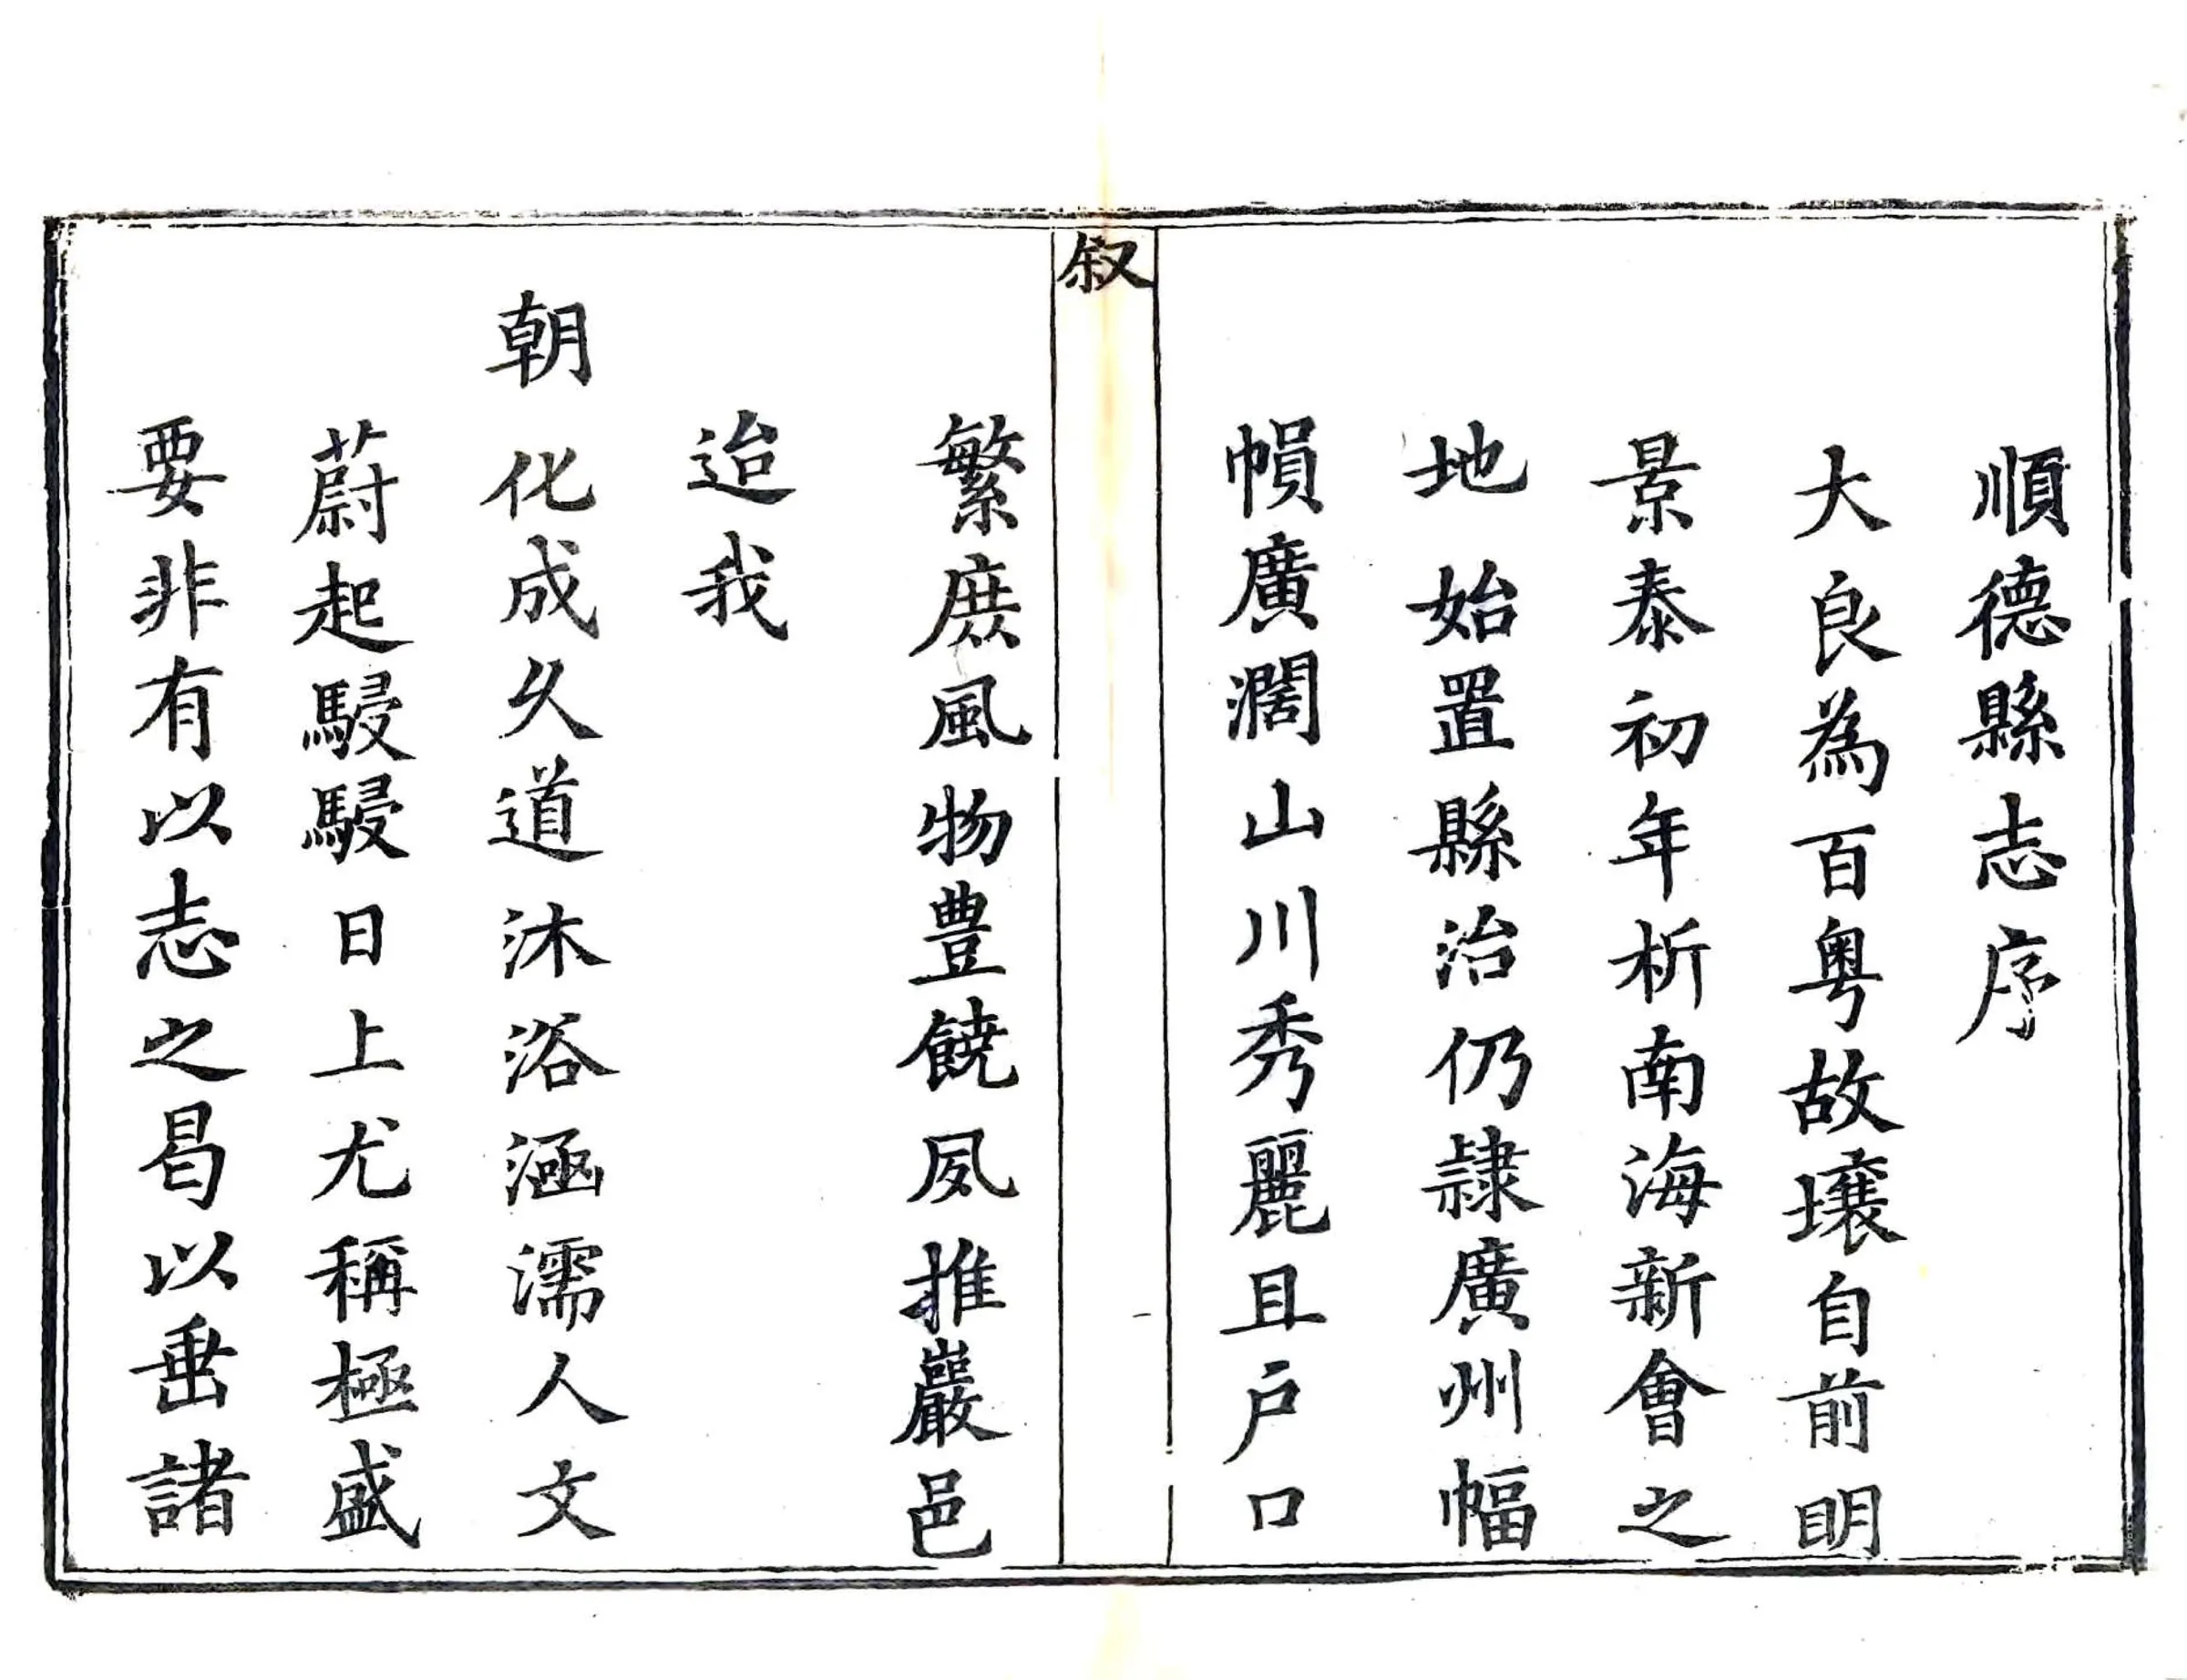 順德縣志序
大良為百粵故壤自前明
景泰初年析南海新會之
地始置縣治仍隷廣州幅
幁廣濶山川秀麗且戶口
叙
繁庶風物豊饒夙推巖邑
迨我
朝化成久道沐浴涵濡人文
蔚起駸駸日上尤稱極盛
要非有以志之曷以垂諸